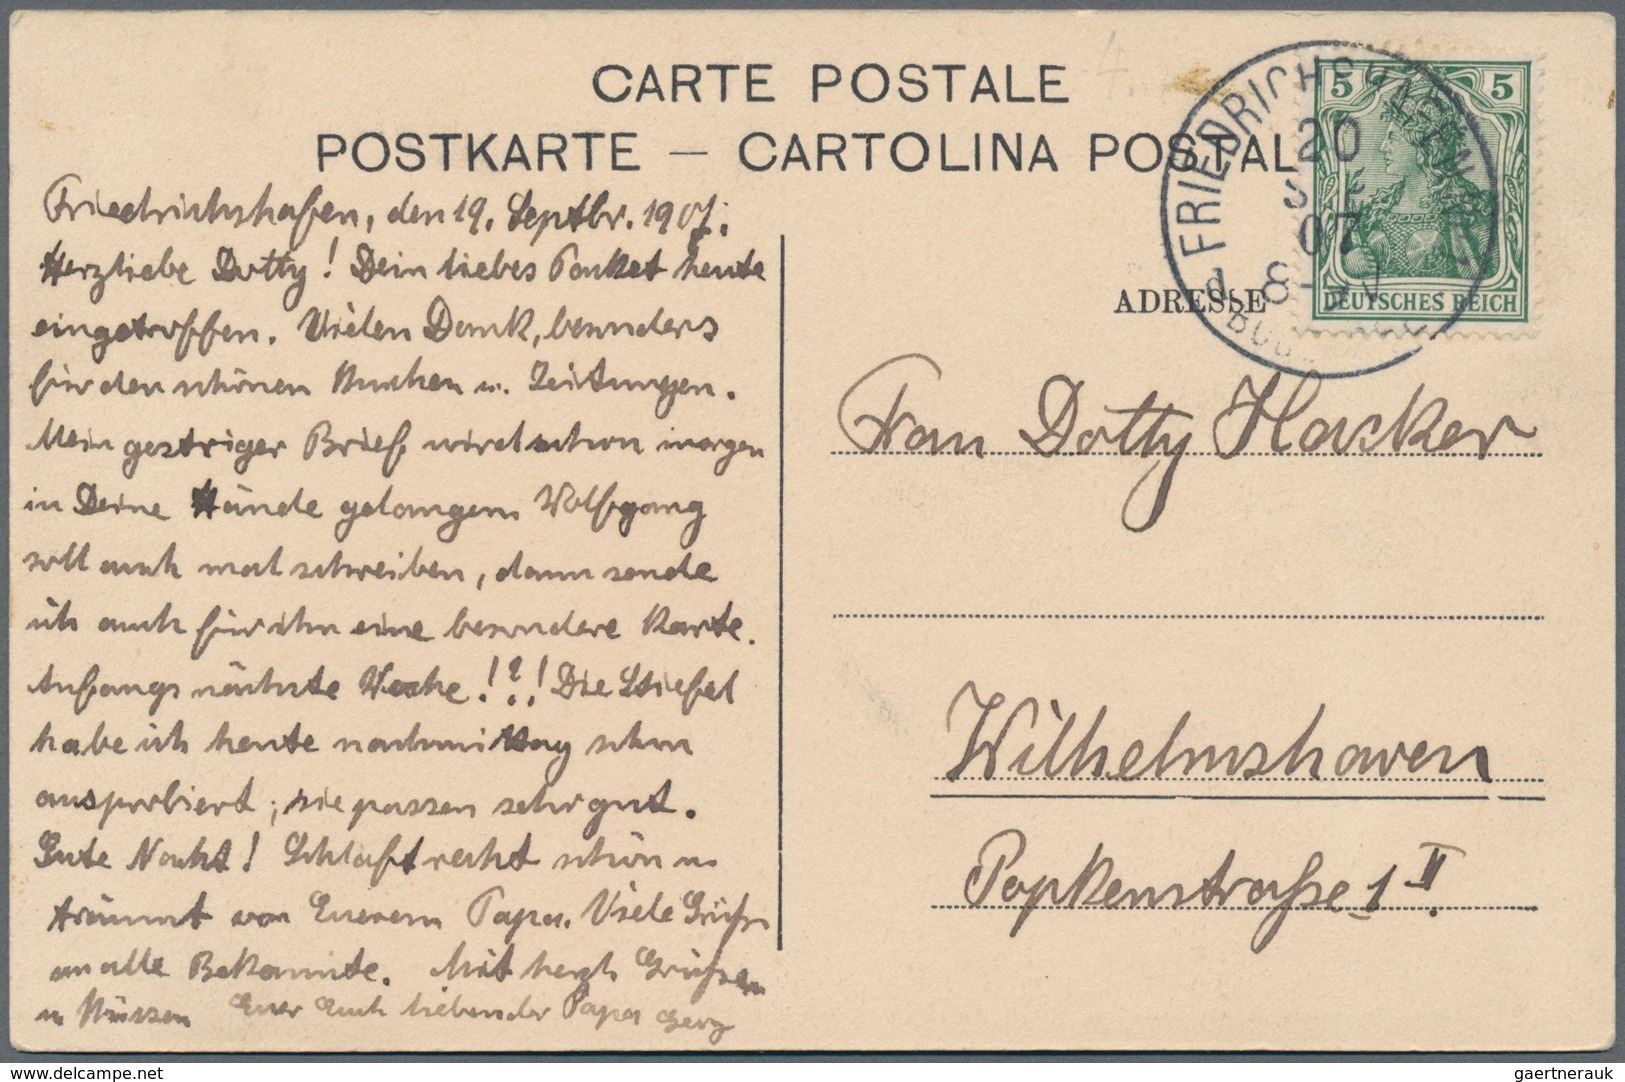 CARTE POSTALE
POSTKARTE — CARTOLINA POSTALE
Friedrichshafen, den 19. Septbr. 1907.
Herzliebe Dotty! Dein liebes Packet heute
eingetroffen. Vielen Dank, besonders
für den schönen Kuchen u. Zeitungen.
Mein gestriger Brief wird schon morgen
in Deine Hände gelangen. Wolfgang
soll auch mal schreiben, dann sende
ich auch für ihn eine besondere Karte.
Anfangs nächste Woche!?! Die Stiefel
habe ich heute nachmittag schon
ausprobiert; sie passen sehr gut.
Gute Nacht! Schlaft recht schön u.
träumt von Eurem Papa. Viele Grüße
an alle Bekannte. Mit herzl. Grüßen
u. Küssen Euer Euch liebender Papa
FRIEDRICHSHAFEN
20
SEP
07
8-9V
5 5
DEUTSCHES REICH
ADRESSE
Frau Dotty Hacker
Wilhelmshaven
Popkenstraße 1 II.
delcampe.net
gaertnerauk